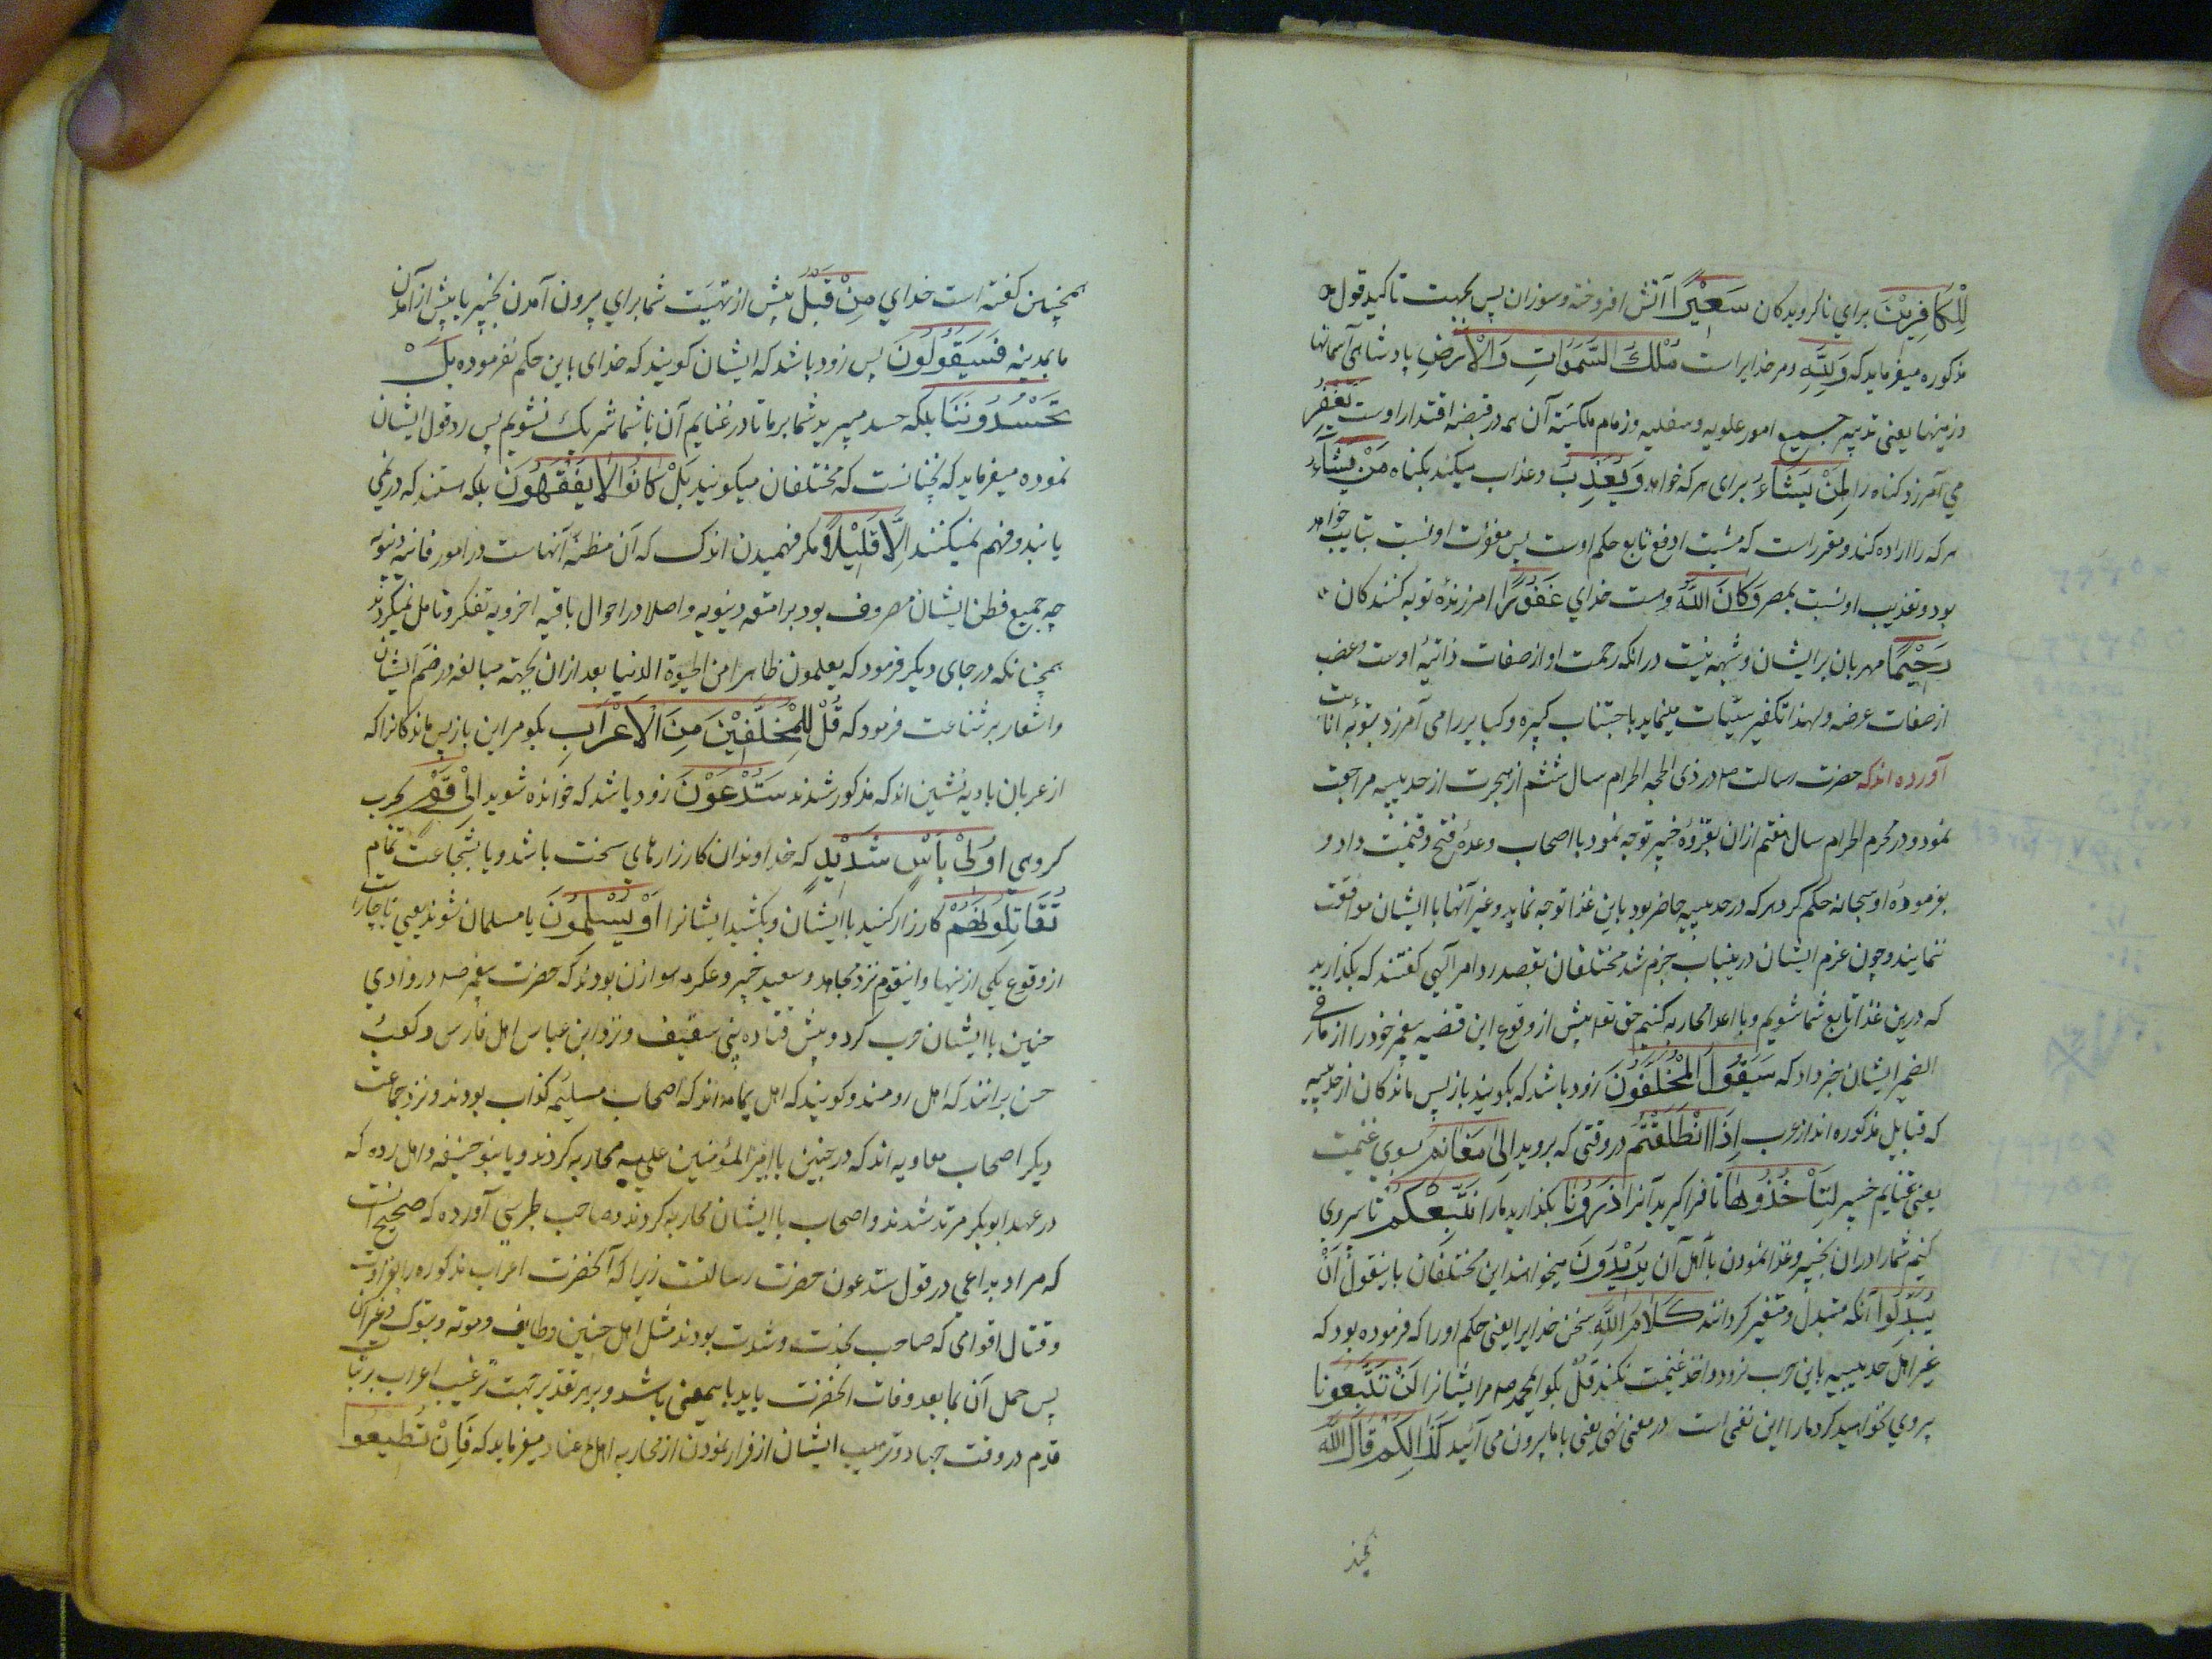 لِلْكَافِرِيْنَ براي ناكرويدكان سَعِيْرًا آتش افروخته وسوزان پس بجهت تاكيد قول
مذكوره ميفرمايد كه وَلِلَّهِ ومر خدايراست مُلْكُ السَّمَوَاتِ وَالْاَرْضِ پادشاهي آسمانها
وزمينها يعني تدبير جميع امور علويه وسفليه وزمام ملكيته آن همه در قبضه اقتدار اوست يَغْفِرُ
مي آمرزد كناه را لِمَنْ يَشَاءُ براى هر كه خواهد وَيُعَذِّبُ وعذاب ميكند بكناه مَنْ يَشَاءُ
هر كه را اراده كند ومقرر است كه مشيت تابع حكم اوست پس مغفرت او نسبت بتايب خواهد
بود وتعذيب او نسبت بمصر وَكَانَ اللَّهُ وهست خداي غَفُوْرًا امرزنده توبه كنندكان
رَحِيْمًا مهربان بر ايشان وشبهه نيست در انكه رحمت او از صفات ذاتيه اوست وغضب
از صفات عرضه ولهذا تكفير سيئات مينمايد باجتناب كبيره وكباير را مى آمرزد بتوبه
آورده اند كه حضرت رسالت صلعم در ذى الحجه الحرام سال ششم از هجرت از حديبيه مراجعت
نمود ودر محرم الحرام سال هفتم ازان بغزوه خيبر توجه نمود با اصحاب وعده فتح وغنيمت داد و
بفرموده او سبحانه حكم كرد هر كه در حديبيه حاضر بود باين غذا توجه نمايد وغير آنها با ايشان موافقت
ننمايند وچون عزم ايشان درينباب جزم شد مختلفان بقصد رد امر آلهي كفتند كه بكذاريد
كه درين غذا تابع شما شويم وبا اعدا محاربه كنيم حق تعه پيش از وقوع اين قضيه پيغمبر خود را از ما فى
الضمير ايشان خبر داد كه سَيَقُوْلُ الْمُخَلَّفُونَ زود باشد كه بكويند باز پس ماندكان از حديبيه
كه قبايل مذكوره اند از عرب اِذَا انْطَلَقْتُمْ در وقتى كه برويد الى مَغَانِمَ بسوي غنيمت
يعنى غنايم خيبر لِتَأْخُذُوهَا تا فرا كيريد آنرا ذَرُوْنَا بكذاريد مارا نَتَّبِعْكُمْ تا پيروى
كنيم شمارا دران بخيبر وغذا نمودن با اهل آن يُرِيْدُوْنَ ميخواهند اين مختلفان باينقول اَنْ
يُبَدِّلُوا آنكه متبدل ومتغير كردانند كَلَامَ اللَّهِ سخن خدايرا يعنى حكم اورا كه فرموده بود كه
غير اهل حديبيه باين حرب نرود واخذ غنيمت نكند قُلْ بكو اي محمد صلعم مر ايشانرا لَنْ تَتَّبِعُونَا
پيروي نخواهيد كرد مارا اين نفى است در معنى نهى يعنى باما بيرون مى آئيد كَذَالِكُمْ قَالَ اللَّهُ
همچنين كفته است خداي مِنْ قَبْلُ پيش از تهيت شما براي بيرون آمدن بخيبر يا پيش از آمدن
ما بمدينه فَسَيَقُوْلُوْنَ پس زود باشد كه ايشان كويند كه خداى باين حكم نفرموده بَلْ
تَحْسُدُوْنَنَا بلكه حسد ميبريد شما بر ما تا در غنايم آن با شما شريك نشويم پس رد قول ايشان
نموده ميفرمايد كه نچنانست كه مختلفان ميكويند بَلْ كَانُوْا لَا يَفْقَهُوْنَ بلكه هستند كه در نمى
يابند وفهم نميكنند اِلَّا قَلِيْلًا مكر فهميدن اندك كه آن مظنه آنهاست در امور فانيه دنيويه
چه جميع فطن ايشان مصروف بود بر امتعه دنيويه واصلا در احوال باقيه اخرويه تفكر وتامل نميكردند
همچنانكه در جاى ديكر فرمود كه يعلمون ظاهرا من الحيوة الدنيا بعد ازان بجهته مبالغه در ذم ايشان
واشعار بر شناعت فرمود كه قُلْ لِلْمُخَلَّفِيْنَ مِنَ الْاَعْرَابِ بكو مر اين باز پس ماندكانرا كه
از عربان باديه نشين اند كه مذكور شدند سَتُدْعَوْنَ زود باشد كه خوانده شويد اِلَى قَوْمٍ بحرب
كروهى اُولِى بَأْسٍ شَدِيْدٍ كه خداوندان كارزارهاي سخت باشد ويا بشجاعت تمام
تُقَاتِلُوْنَهُمْ كارزار كنيد با ايشان وبكشيد ايشانرا اَوْ يُسْلِمُوْنَ يا مسلمان شوند يعني ناچارست
از وقوع يكي از اينها واينقوم نزد مجاهد وسعيد جبير وعكرمه هوازن بودند كه حضرت پيغمبر صلعم در وادي
حنين با ايشان حرب كرد وپيش قتاده بني سقيف ونزد ابن عباس اهل فارس وكعب
حسن برانند كه اهل رومند وكويند كه اهل يمامه اند كه اصحاب مسليمه كذاب بودند ونزد جماعت
ديكر اصحاب معاويه اند كه در با امير المؤمنين علي عليه محاربه كردند ويا بنو حنيفه واهل رده كه
در عهد ابوبكر مرتد شدند واصحاب با ايشان محاربه كردند وصاحب طبرسي آورده كه صحيح انست
كه مراد بداعى در قول ستدعون حضرت رسالتست زيرا كه آنحضرت اعراب مذكوره را بغزوات
وقتال اقوامى كه صاحب نجدت وشدت بودند مثل اهل حنين وطايف وموته وتبوك وغير آن
پس حمل آن بما بعد وفات انحضرت بايد باشد وبر هر تقدير جهت ترغيب اعراب بر ثبات
قدم در وقت جهاد وترهيب ايشان از فرار نمودن از محاربه اهل عناد ميفرمايد كه فَاِنْ تُطِيْعُوا